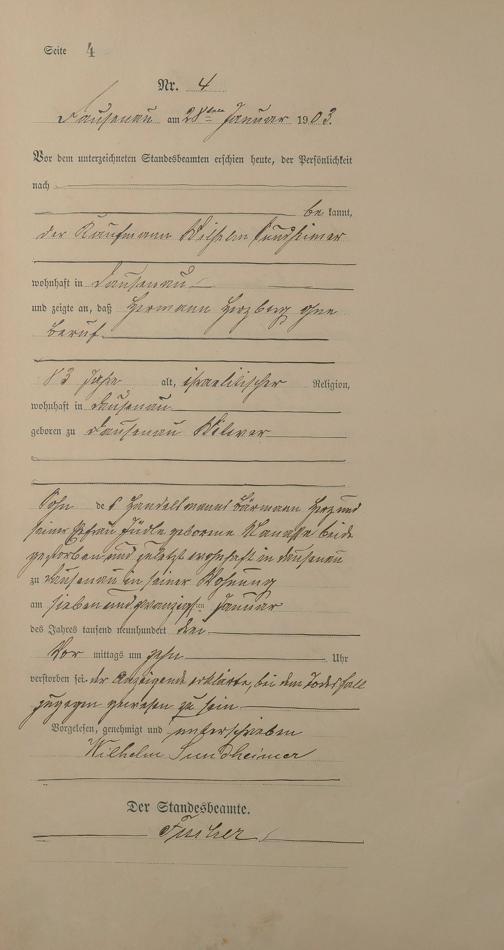 Seite 4
Nr. 4
Dausenau am 28ten Januar 1903.
Vor dem unterzeichneten Standesbeamten erschien heute, der Persönlichkeit
nach
be kannt,
der Kaufmann Wilhelm Sundheimer
wohnhaft in Dausenau
und zeigte an, daß Hermann Herzberg ohne
Beruf
83 Jahre alt, israelitischer Religion,
wohnhaft in Dausenau
geboren zu Dausenau Witwer
Sohn des Handelsmanns Bärmann Herz und
seiner Ehefrau Jüdle geborene Manasse beide
gestorben und zuletzt wohnhaft in Dausenau
zu Dausenau in seiner Wohnung
am sieben und zwanzigsten Januar
des Jahres tausend neunhundert drei
Vor mittags um zehn Uhr
verstorben sei. der Anzeigende erklärte, bei dem Todesfall
zugegen gewesen zu sein
Vorgelesen, genehmigt und unterschrieben
Wilhelm Sundheimer
Der Standesbeamte.
Fischer